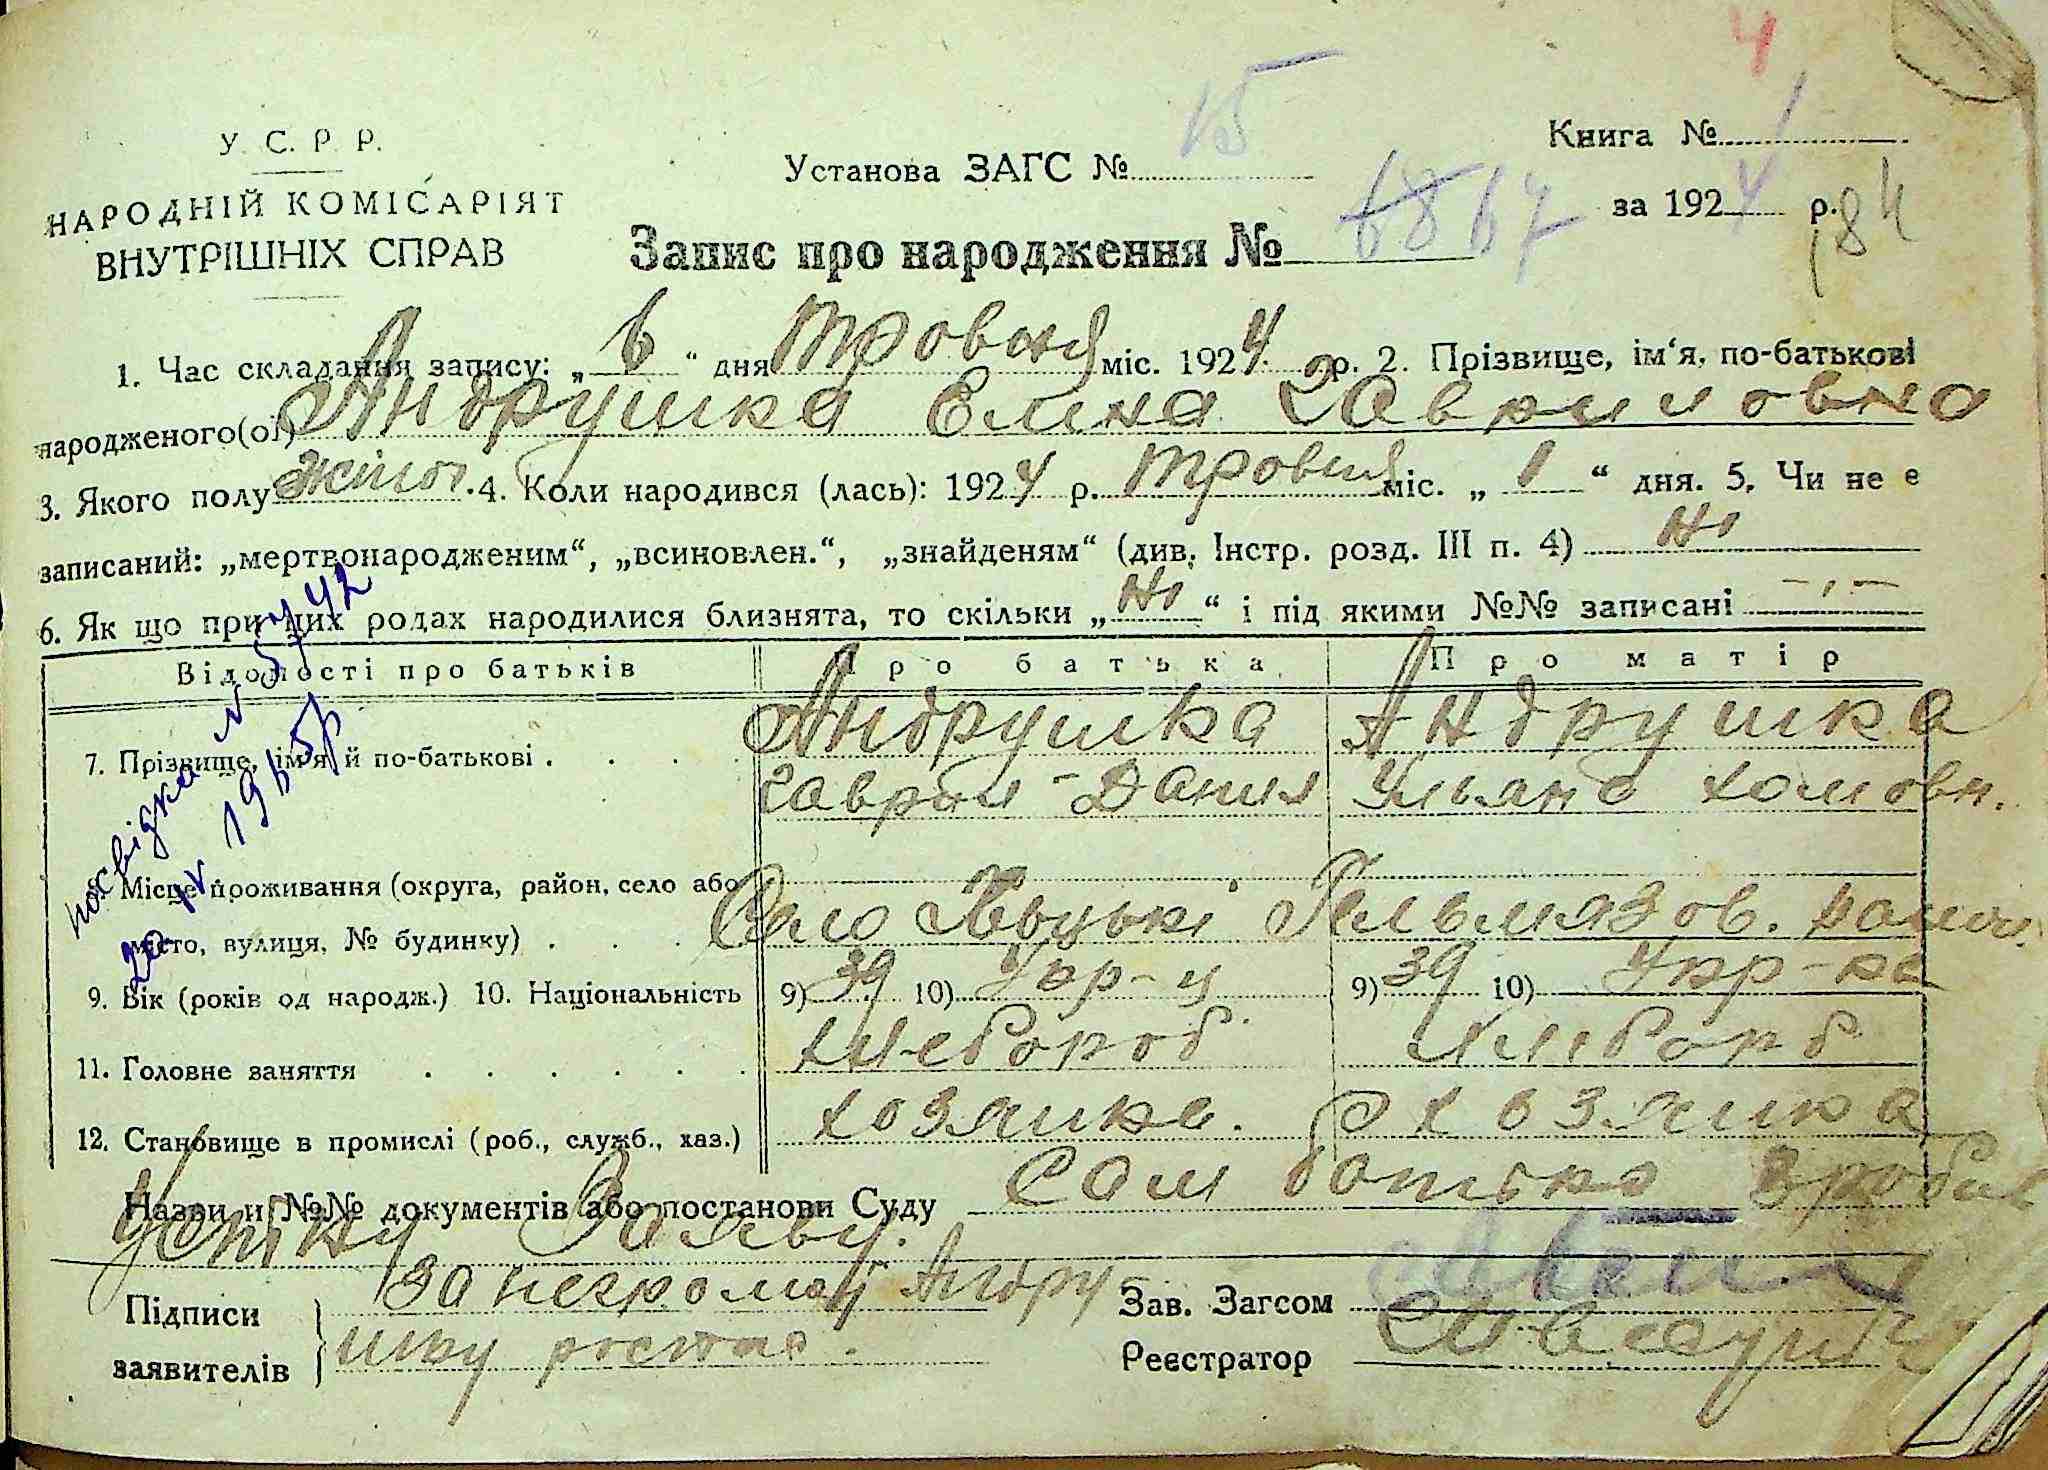 4
У. С. Р. Р.
НАРОДНІЙ КОМІСАРІЯТ
ВНУТРІШНІХ СПРАВ
Установа ЗАГС № 15
Книга № 1
за 1924 р. 84
Запис про народження № 68 67
1. Час складання запису: „ 6 “ дня Тровня міс. 1924 р. 2. Прізвище, ім‘я, по-батькові
народженого(ої) Андрушка Елина Гавриловна
3. Якого полу жіноч. 4. Коли народився (лась): 1924 р. Тровня міс. „ 1 “ дня. 5. Чи не є
записаний: „мертвонародженим“, „всиновлен.“, „знайденям“ (див. Інстр. розд. III п. 4) Ні
6. Як що при цих родах народилися близнята, то скільки „ Ні “ і під якими №№ записані -,-
Відомості про батьків Про батька Про матір
7. Прізвище, ім‘я й по-батькові . . . . Андрушка Андрушка
Гаврил - Данил Ульяна Хомовн.
8. Місце проживання (округа, район, село або
місто, вулиця, № будинку) . . . Село Гельмязов.
9. Вік (років од народж.) 10. Національність 9) 39 10) Укр-ц 9) 39 10) Укр-ка
11. Головне заняття . . . . . . Хлебороб
12. Становище в промислі (роб., служб., хаз.) хозяика хозяика
Назви и №№ документів або постанови Суду Сам батько зробив
Устну Заяву.
Підписи За неграмот Андру
заявителів шку
Зав. Загсом
Реєстратор
посвідка № 57442
20 IV 1965р